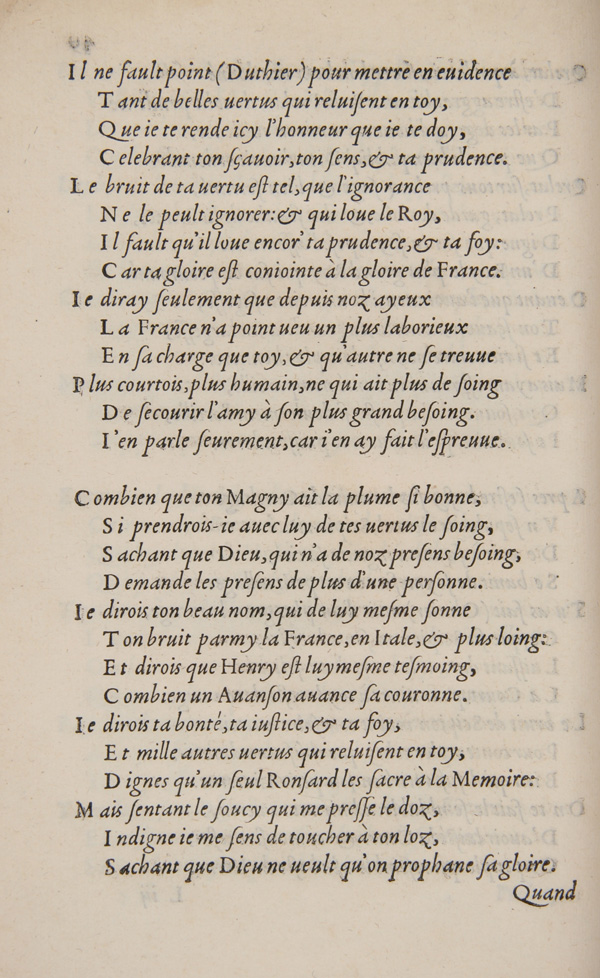 Il ne fault point (Duthier) pour mettre en euidence
Tant de belles uertus qui reluiſent en toy,
Que ie te rende icy l'honneur que ie te doy,
Celebrant ton ſçauoir, ton ſens, & ta prudence.
Le bruit de ta uertu eſt tel, que l'ignorance
Ne le peult ignorer: & qui loue le Roy,
Il fault qu'il loue encor' ta prudence, & ta foy:
Car ta gloire eſt coniointe à la gloire de France.
Ie diray ſeulement que depuis noz ayeux
La France n'a point ueu un plus laborieux
En ſa charge que toy, & qu'autre ne ſe treuue
Plus courtois, plus humain, ne qui ait plus de ſoing
De ſecourir l'amy à ſon plus grand beſoing.
I'en parle ſeurement, car i'en ay fait l'eſpreuue.
Combien que ton Magny ait la plume ſi bonne,
Si prendrois-ie auec luy de tes uertus le ſoing,
Sachant que Dieu, qui n'a de noz preſens beſoing,
Demande les preſens de plus d'une perſonne.
Ie dirois ton beau nom, qui de luy meſme ſonne
Ton bruit parmy la France, en Itale, & plus loing:
Et dirois que Henry eſt luy meſme teſmoing,
Combien un Auanſon auance ſa couronne.
Ie dirois ta bonté, ta iuſtice, & ta foy,
Et mille autres uertus qui reluiſent en toy,
Dignes qu'un ſeul Ronſard les ſacre à la Memoire:
Mais ſentant le ſoucy qui me preſſe le doz,
Indigne ie me ſens de toucher à ton loz,
Sachant que Dieu ne ueult qu'on prophane ſa gloire.
Quand